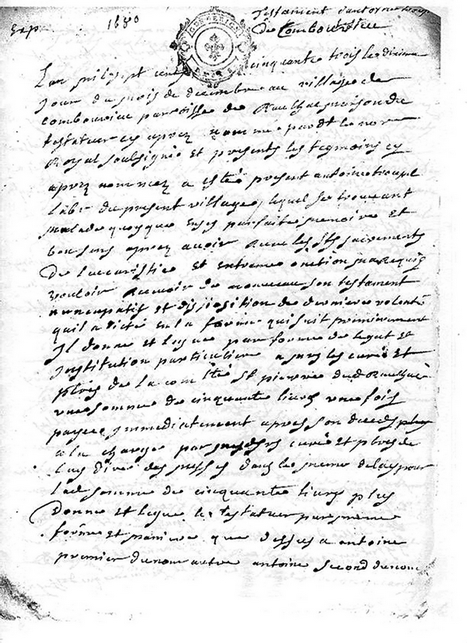 Exp. 1850 Testament d'antoine
De Combourieu
L'an mil sept cent cinquante trois le dixieme
Jour du mois de decembre au village de
combourieu paroisse de maison du
testateur cy aprez nomme pardt le notre
Royal soussigné et presents les temoins cy
aprez nommez a esté present antoine
Labr du present village, lequel se trouvant
malade quoyque en sa parfaite memoire et
bon sens aprez avoir Receu les sts sacrements
De Leucaristie et extreme onction ma Requis
vouloir Recevoir de nouveau son testament
nuncupatif et disposition de derniere volonté
quil a dicté en la forme qui suit premierement
Il donne et Legue par forme de legat et
Institution particuliere a srs les curé et
ptres de la com^té St pierre de
une somme de cinquante livres une fois
payée Immediatement apres son deces
a la charge par srs curé et ptres de
Luy dire des messes dans le meme delay pour
lad somme de cinquante livres plus
Donne et legue le testateur par meme
forme et maniere que dessus a antoine
premier du nom autre antoine second du nom